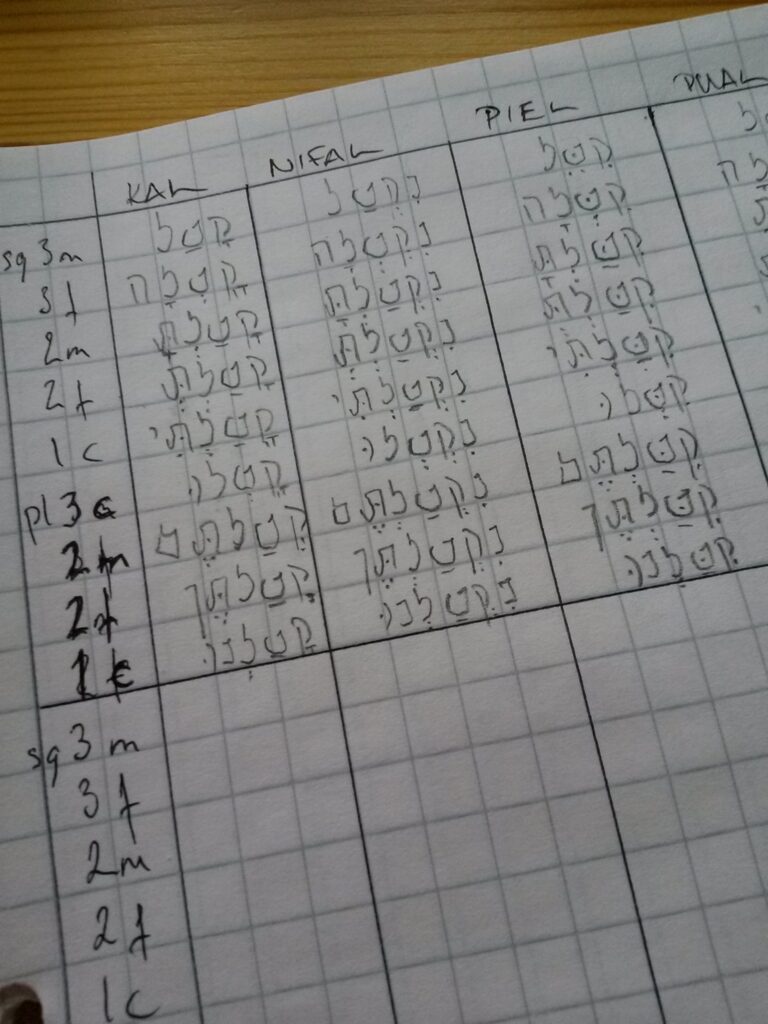 KAL NIFAL PIEL PUAL
sg 3 m קָטַל נִקְטַל קִטֵּל
3 f קָטְלָה נִקְטְלָה קִטְּלָה
2 m קָטַלְתָּ נִקְטַלְתָּ קִטַּלְתָּ
2 f קָטַלְתְּ נִקְטַלְתְּ קִטַּלְתְּ
1 c קָטַלְתִּי נִקְטַלְתִּי קִטַּלְתִּי
pl 3 c קָטְלוּ נִקְטְלוּ קִטְּלוּ
2 m קְטַלְתֶּם נִקְטַלְתֶּם קִטַּלְתֶּם
2 f קְטַלְתֶּן נִקְטַלְתֶּן קִטַּלְתֶּן
1 c קָטַלְנוּ נִקְטַלְנוּ קִטַּלְנוּ
sg 3 m
3 f
2 m
2 f
1 c